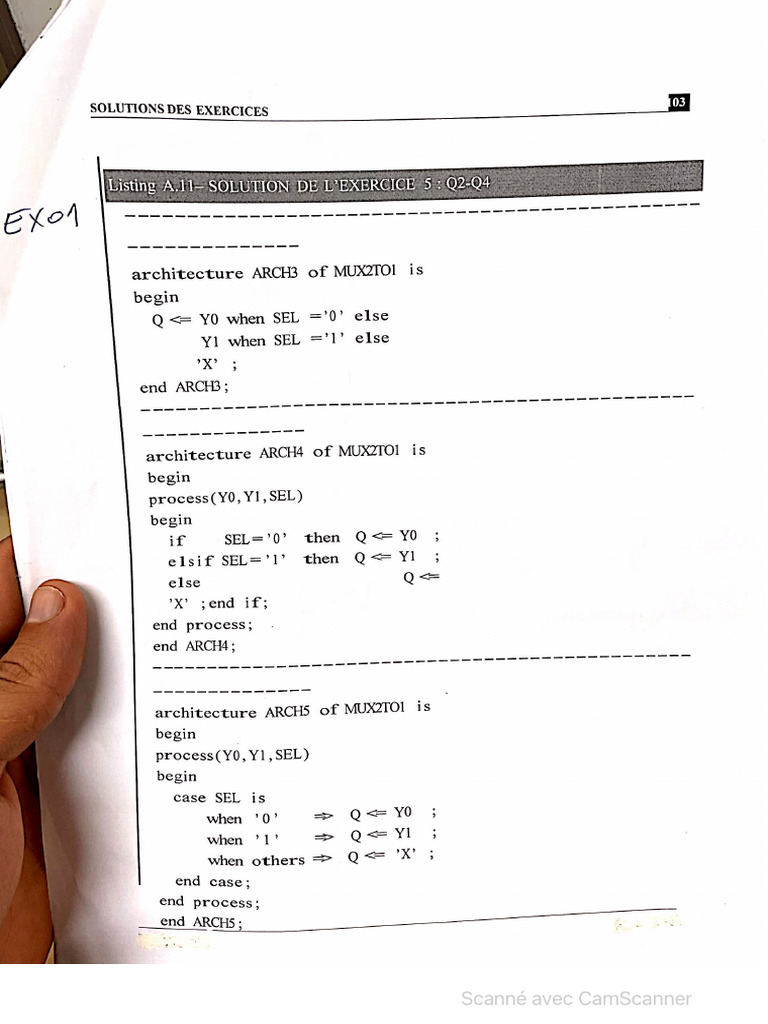 SOLUTIONS DES EXERCICES
103
Listing A.11– SOLUTION DE L'EXERCICE 5 : Q2-Q4
EX01
----------------------------------------------------
---------------
architecture ARCH3 of MUX2TO1 is
begin
Q <= Y0 when SEL ='0' else
Y1 when SEL ='1' else
'X' ;
end ARCH3;
----------------------------------------------------
---------------
architecture ARCH4 of MUX2TO1 is
begin
process(Y0,Y1,SEL)
begin
if SEL='0' then Q <= Y0 ;
elsif SEL='1' then Q <= Y1 ;
else Q <=
'X' ;end if;
end process;
end ARCH4;
----------------------------------------------------
---------------
architecture ARCH5 of MUX2TO1 is
begin
process(Y0,Y1,SEL)
begin
case SEL is
when '0' => Q <= Y0 ;
when '1' => Q <= Y1 ;
when others => Q <= 'X' ;
end case;
end process;
end ARCH5;
Scanné avec CamScanner